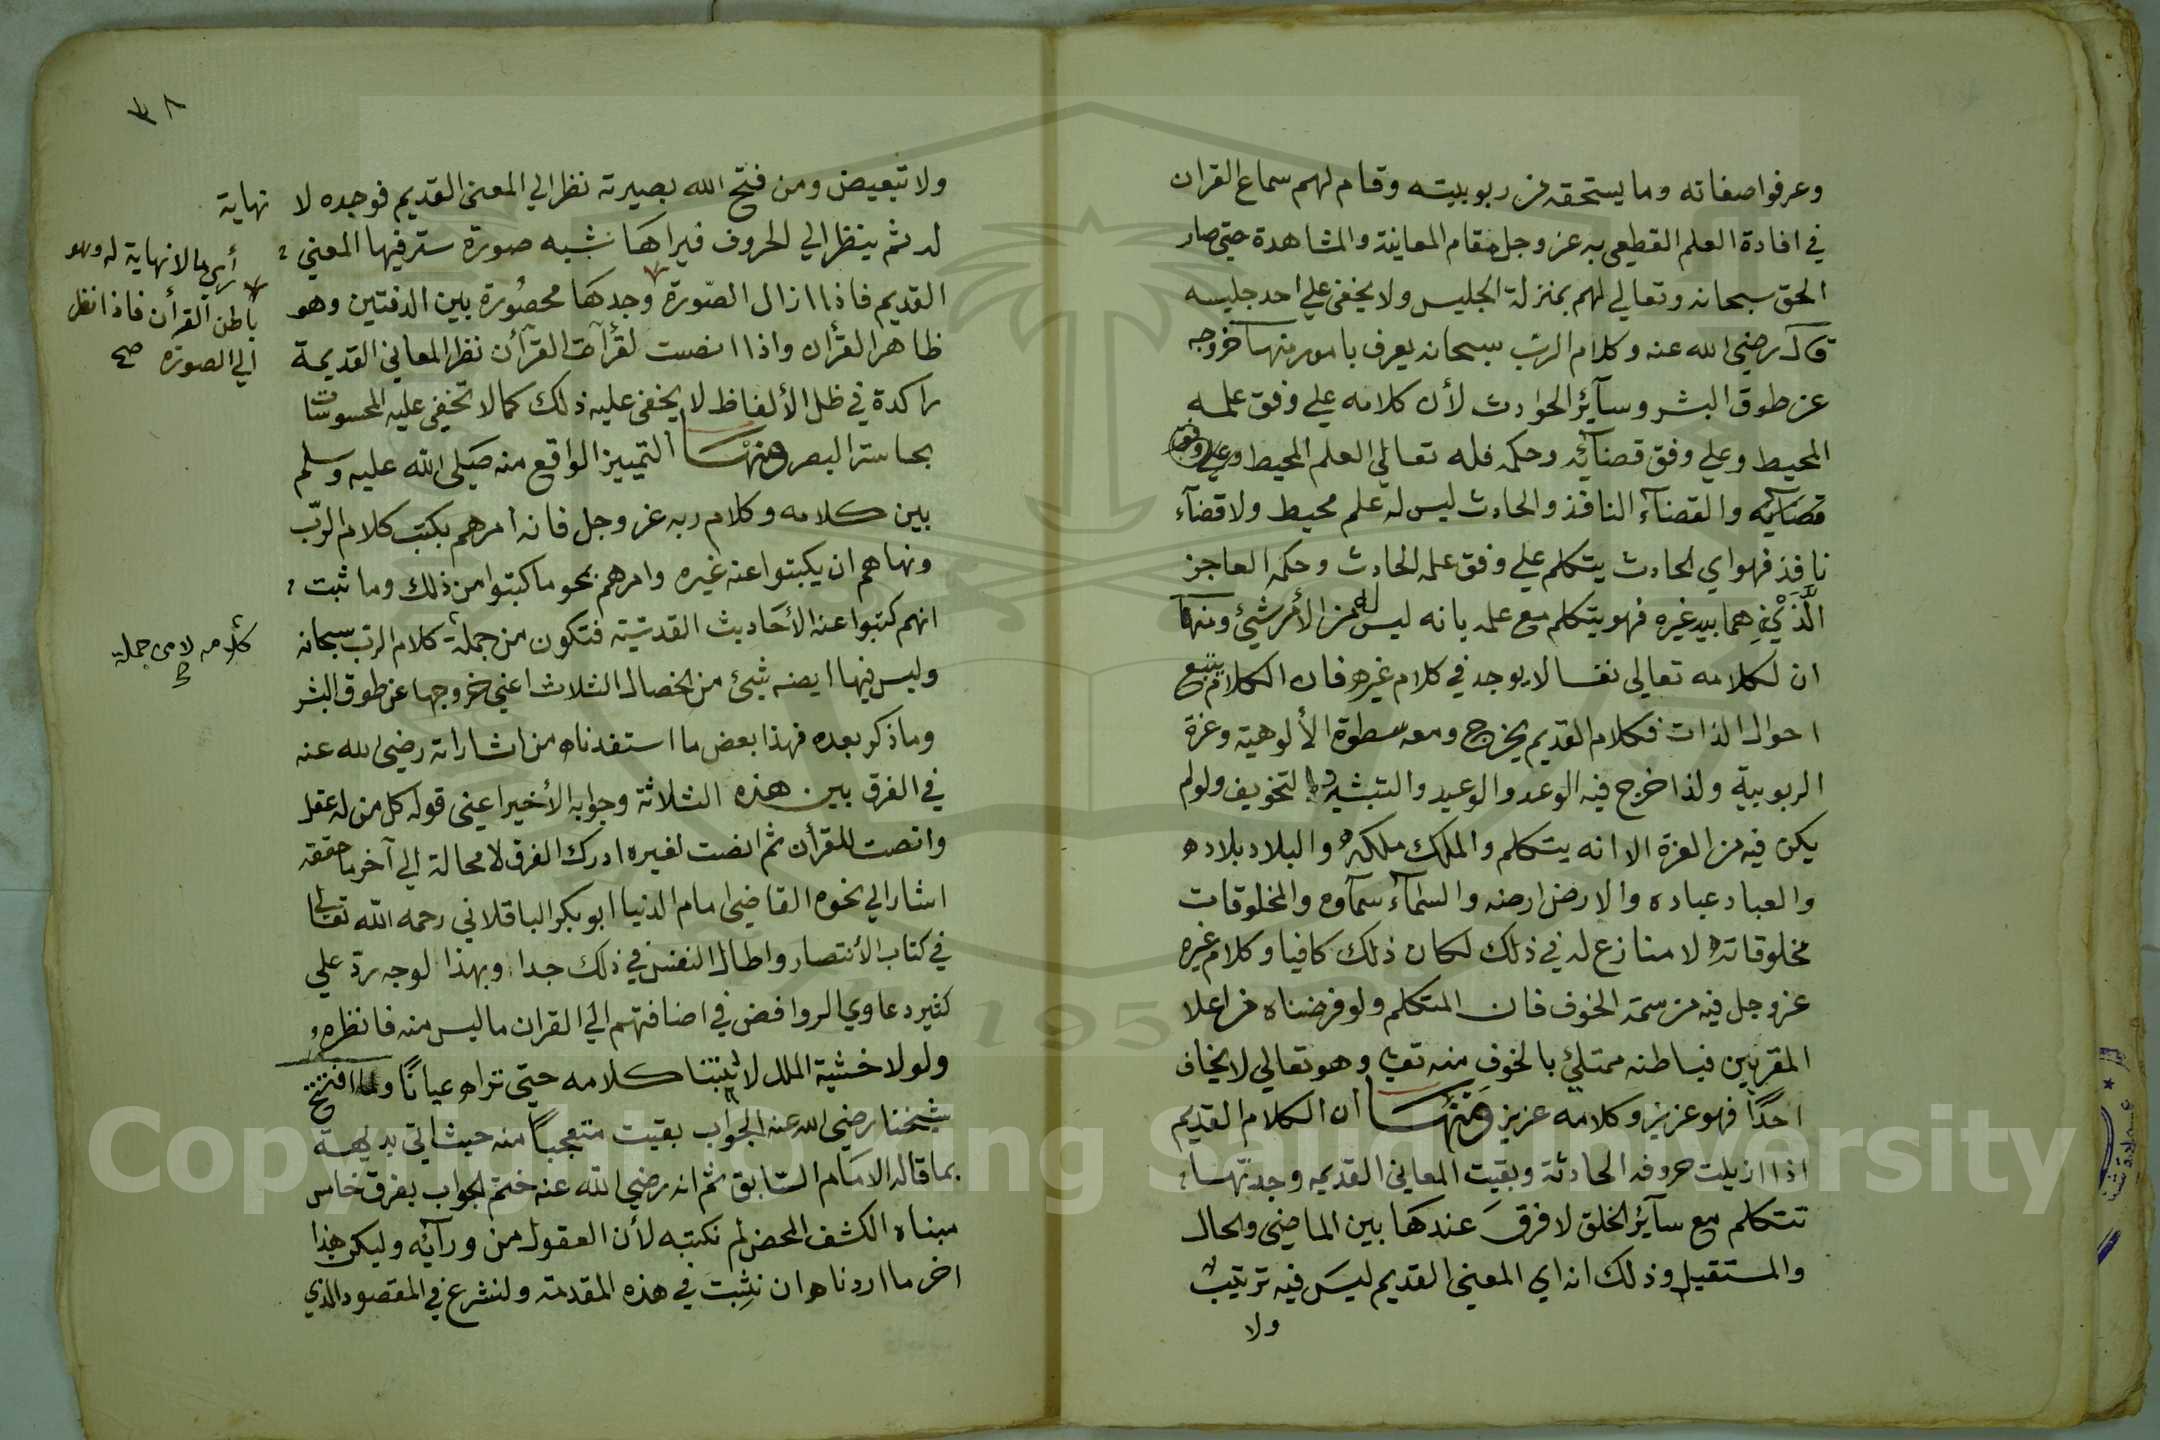 وعرفوا صفاته وما يستحقه من ربوبيته وقام لهم سماع القران
في افادة العلم القطعي به عز وجل مقام المعاينة والمشاهدة حتي صار
الحق سبحانه وتعالي لهم بمنزلة الجليس ولا يخفي علي احد جليسه
قال رضي الله عنه وكلام الرب سبحانه يعرف بامور منها خروجه
عن طوق البشر وسآئر الحوادث لأن كلامه علي وفق علمه
المحيط وعلي وفق قضآئه وحكمه فله تعالي العلم المحيط وعلي وفق
قضآئه والقضآء النافذ والحادث ليس له علم محيط ولا قضآء
نافذ فهو اي الحادث يتكلم علي وفق علمه الحادث وحكمه العاجز
الَّذَيْنِ هما بيد غيره فهو يتكلم مع علمه بانه ليس له من الأمر شئ ومنها
ان لكلامه تعالي نفسا لا يوجد في كلام غيره فان الكلام يتبع
احوال الذات فكلام القديم يخرج ومعه سطوة الألوهية وعزة
الربوبية ولذا خرج فيه الوعد والوعيد والتبشير والتخويف ولو لم
يكن فيه من العزة الا انه يتكلم والملك ملكه والبلاد بلاده
والعباد عباده والارض ارضه والسمآء سمآوه والمخلوقات
مخلوقاته لا منازع له في ذلك لكان ذلك كافيا وكلام غيره
عز وجل فيه من سمة الخوف فان المتكلم ولو فرضناه من اعلا
المقربين فباطنه ممتلئ بالخوف منه تعالي وهو تعالي لا يخاف
احدًا فهو عزيز وكلامه عزيز ومنها ان الكلام القديم
اذا ازيلت حروفه الحادثة وبقيت المعاني القديمه وجدتها
تتكلم مع سآئر الخلق لا فرق عندها بين الماضي والحال
والمستقبل وذلك انه اي المعني القديم ليس فيه ترتيب
ولا
٣٨
ولا تبعيض ومن فتح الله بصيرته نظر الي المعني القديم فوجده لا نهاية
له ثم ينظر الي الحروف فيراها شبه صورة ستر فيها المعني
القديم فاذا ازال الصورة وجدها محصورة بين الدفتين وهو
ظاهر القرأن واذا انصت لقرآة القرآن نظر المعاني القديمة
راكدة في ظل الألفاظ لا يخفي عليه ذلك كما لا تخفي عليه المحسوسات
بحاسة البصر ومنها التمييز الواقع منه صلي الله عليه وسلم
بين كلامه وكلام ربه عز وجل فانه أمرهم بكتب كلام الربّ
ونهاهم ان يكتبوا عنه غيره وامرهم بمحو ما كتبوا من ذلك وما ثبت
انهم كتبوا عنه الأحاديث القدسية فتكون من جملة كلام الرب سبحانه
وليس فيها ايضه شيئ من الخصال الثلاث اعني خروجها عن طوق البشر
وما ذكر بعده فهذا بعض ما استفدناه من اشاراته رضي الله عنه
في الفرق بين هذه الثلاثة وجوابه الأخير اعني قوله كل من له عقل
وانصت للقرأن ثم انصت لغيره ادرك الفرق لا محالة الي آخر ما حققه
اشار الي نحوه القاضي امام الدنيا ابو بكر الباقلاني رحمه الله تعالي
في كتاب الأنتصار واطال النفس في ذلك جدا وبهذا الوجه ردّ علي
كثير دعاوي الروافض في اضافتهم الي القران ما ليس منه فانظره
ولولا خشية الملل لأثبتنا كلامه حتي تراه عيانًا ولما افتتح
شيخنا رضي الله عنه الجواب بقيت متعجبا منه حيث اتي بديهة
بما قاله الامام السابق ثم انه رضي الله عنه ختم الجواب بفرق خامس
مبناه الكشف المحض لم نكتبه لأن العقول من ورآئه وليكن هذا
اخر ما اردناه ان نثبت في هذه المقدمة ولنشرع في المقصود الذي
أري ما لا نهاية له وهو
باطن القرأن فاذا نظر
الي الصورة صح
كلامه لا من جملة
صح
Copyright © King Saud University
195